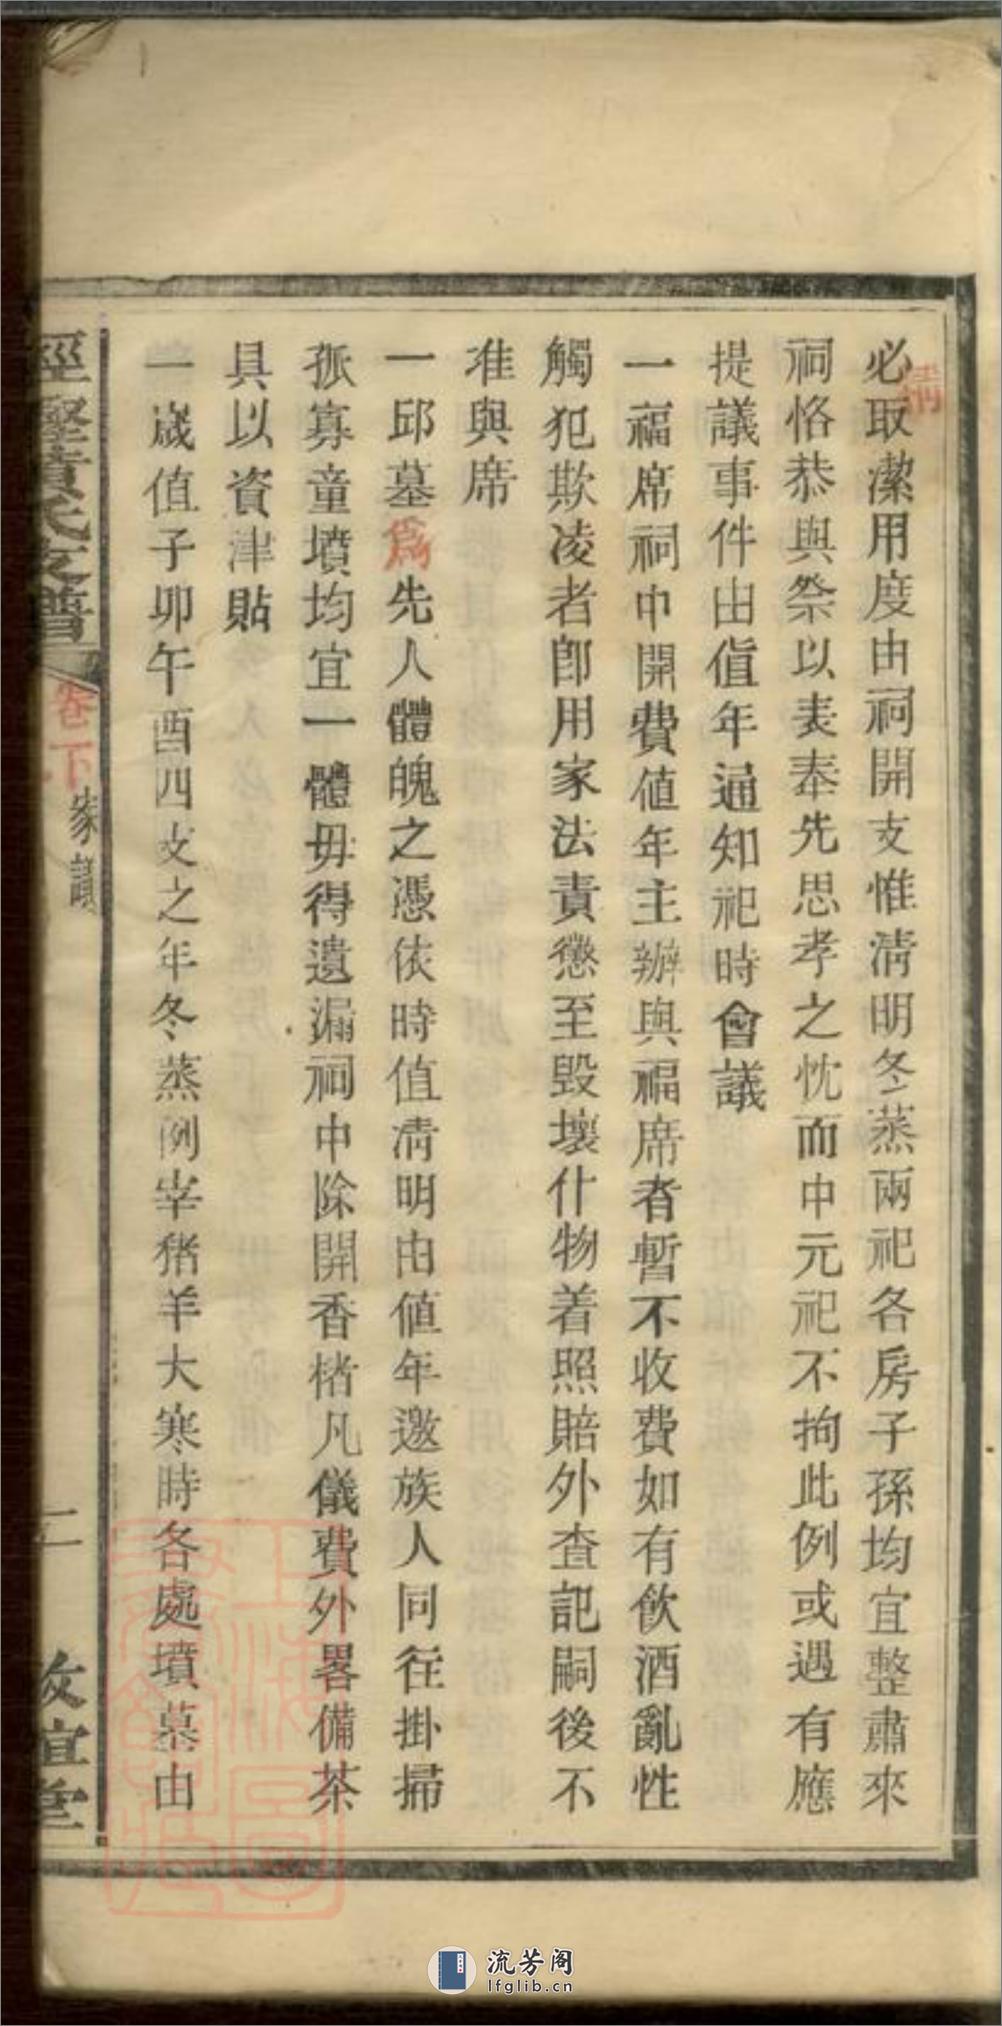 必取潔用度由祠開支惟淸明冬蒸兩祀各房子孫均宜整肅來
清
祠恪恭與祭以表奉先思孝之忱而中元祀不拘此例或遇有應
提議事件由値年通知祀時會議
一福席祠中開費値年主辦與福席者暫不收費如有飲酒亂性
觸犯欺凌者卽用家法責懲至毀壞什物着照賠外查記嗣後不
准與席
一邱墓爲先人體魄之憑依時值淸明由値年邀族人同往掛掃
孤寡童墳均宜一體毋得遺漏祠中除開香楮凡儀費外畧備茶
具以資津貼
一歲值子卯午酉四支之年冬蒸例宰猪羊大寒時各處墳墓由
黃氏支譜
卷下
家議
二
敘宜堂
流芳阁
lfglib.cn